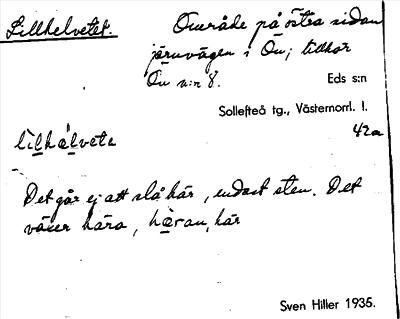 Lillhelvetet.
Område på östra sidan
järnvägen i Ön; tillhör
Ön n:r 8.
Eds s:n
Sollefteå tg., Västernorrl. l.
42a
lìlhælvete
Det går ej att slå här, endast sten. Det
växer hära, hæ̀ran, här
Sven Hiller 1935.